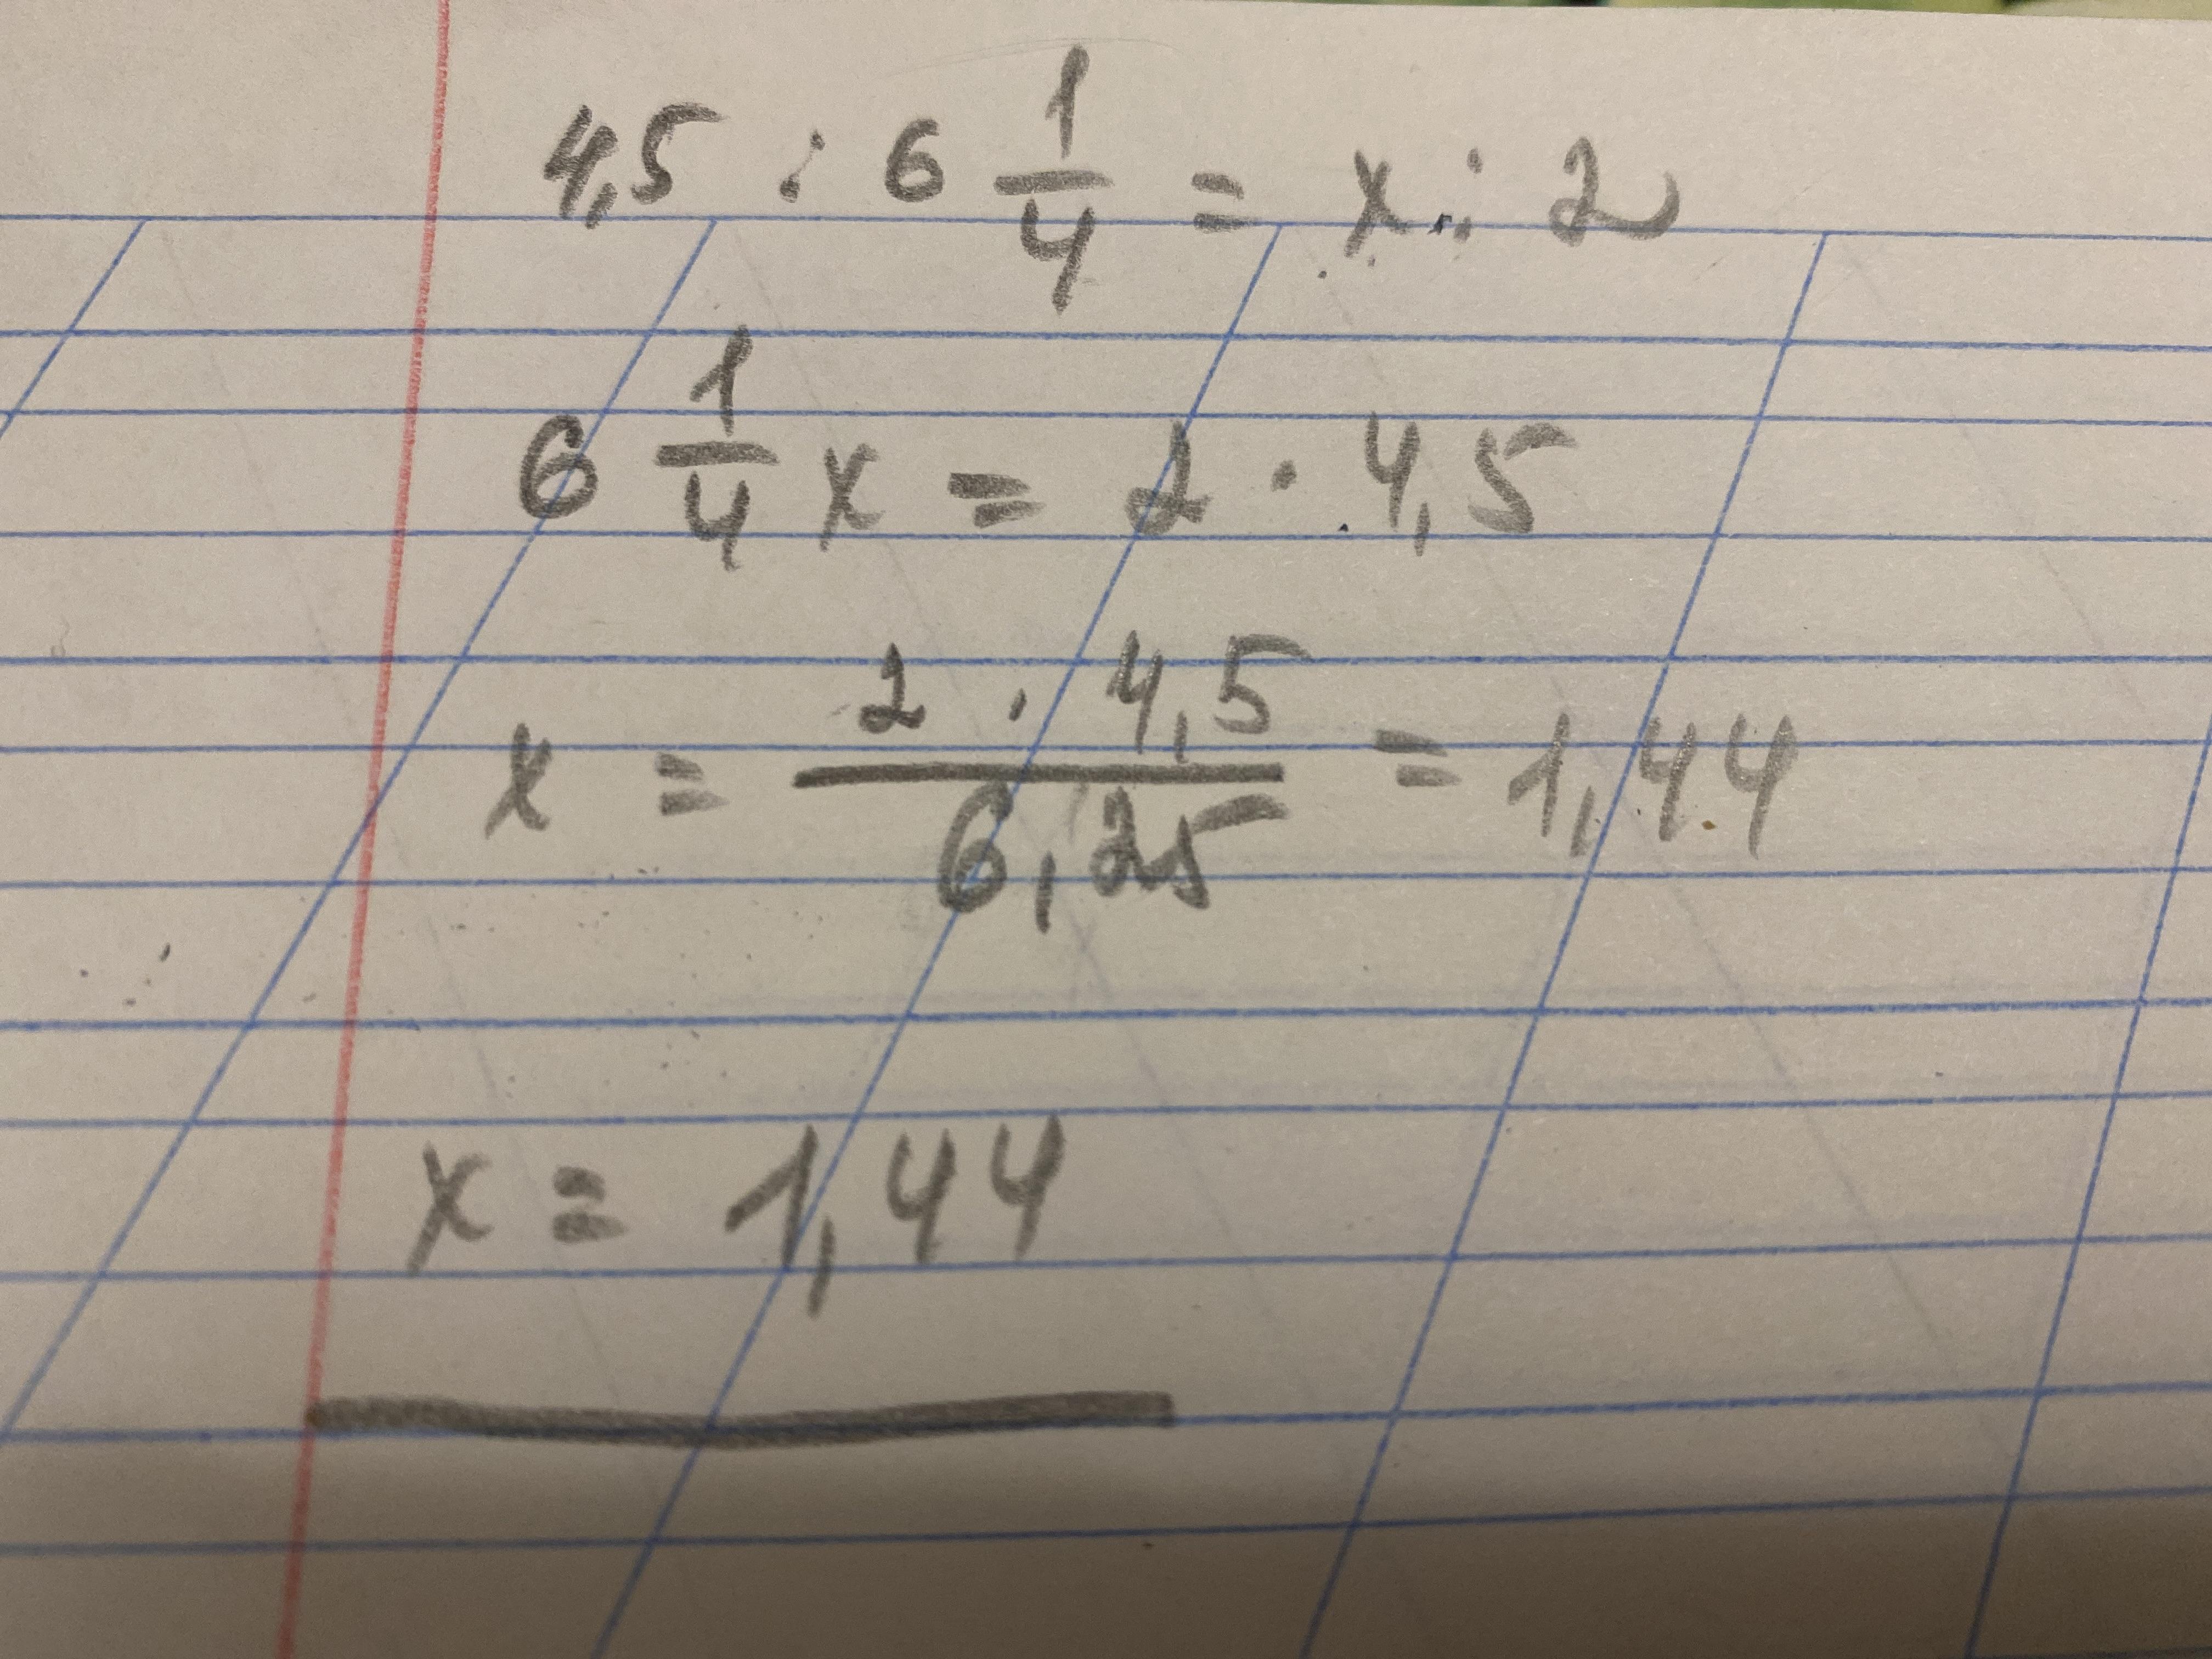 4,5 : 6 1/4 = x : 2
6 1/4 x = 2 · 4,5
x = (2 · 4,5)/(6,25) = 1,44
x = 1,44